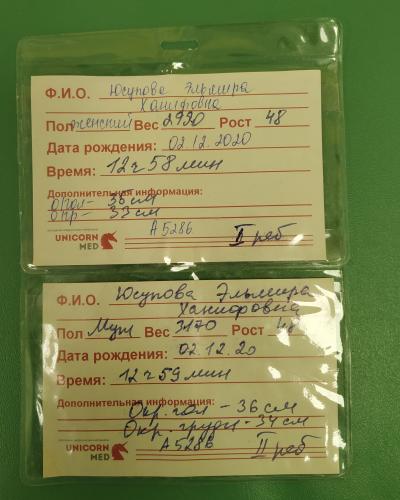 Ф.И.О. Юсупова Эльмира
Ханифовна
Пол женский Вес 2920 Рост 48
Дата рождения: 02.12.2020
Время: 12 ч 58 мин
Дополнительная информация:
о/гол - 36 см
о/гр - 33 см
А 5286 II реб
UNICORN
MED
Ф.И.О. Юсупова Эльмира
Ханифовна
Пол Муж Вес 3170 Рост 48
Дата рождения: 02.12.20
Время: 12 ч 59 мин
Дополнительная информация:
Окр. гол - 36 см
Окр. груди - 34 см
А 5286 II реб
UNICORN
MED